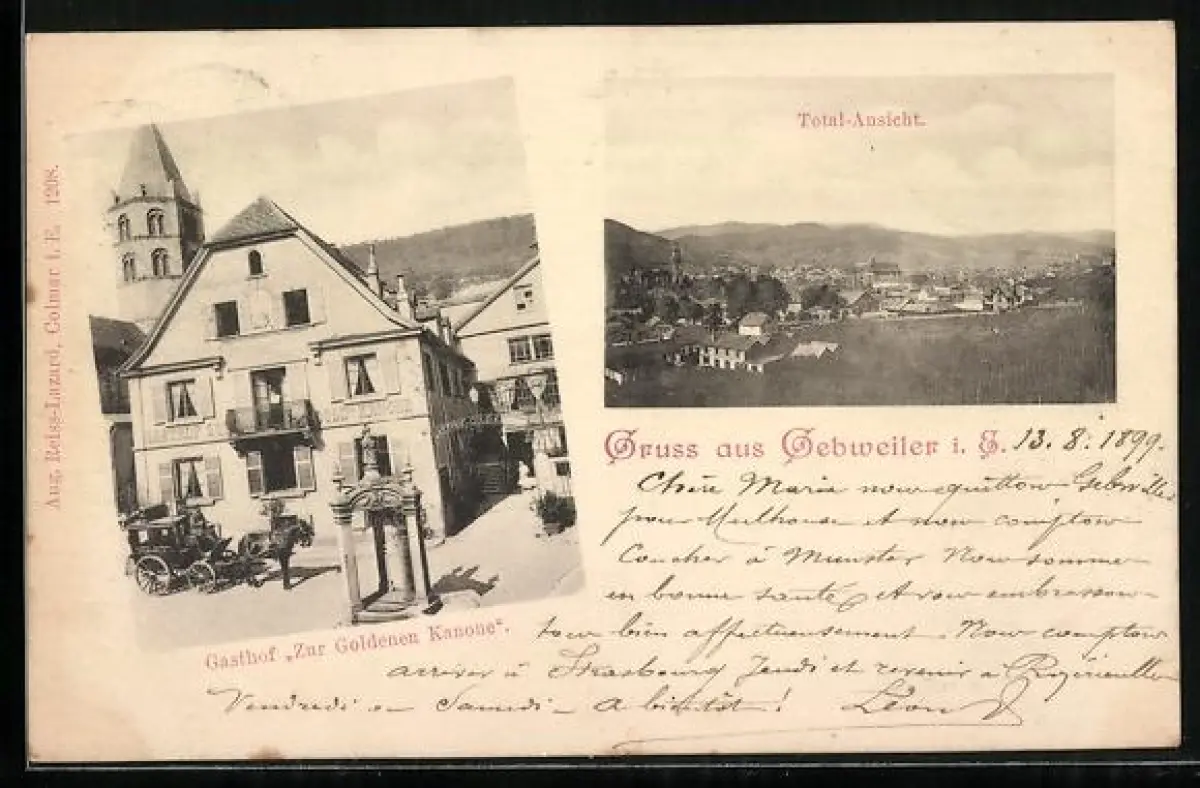 Aug. Reiss-Lazard, Colmar i. E. 1208.
Total-Ansicht.
Gasthof „Zur Goldenen Kanone“.
Gruss aus Gebweiler i. E. 13. 8. 1899.
Chère Marie nous quittons
pour Mulhouse et nous comptons
Coucher à Munster Nous sommes
en bonne santé et vous embrassons
tous bien affectueusement. Nous comptons
arriver à Strasbourg Jeudi et revenir à
Vendredi ou Samedi – A bientôt! Léon